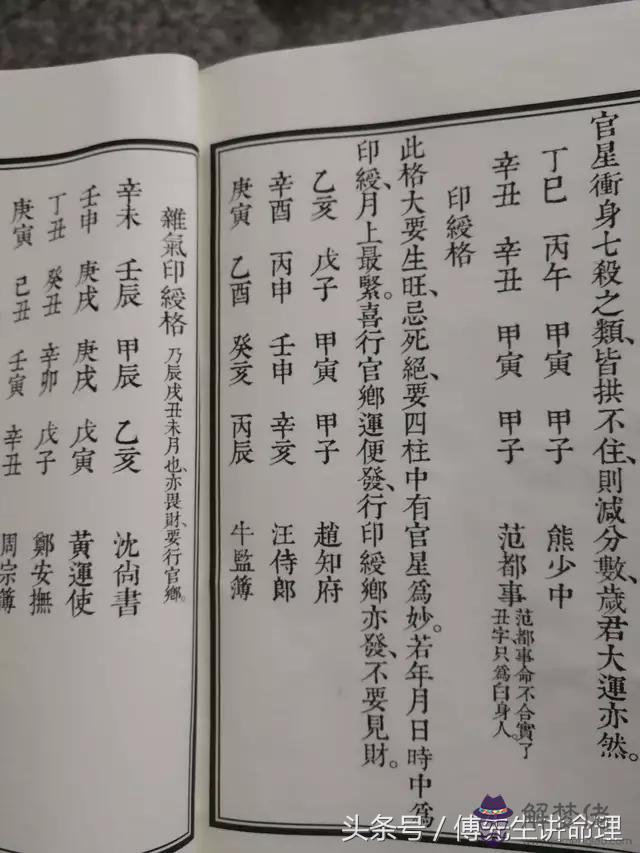 官星衝身七殺之類、皆拱不住、則減分數、歲君大運亦然。
丁巳 丙午 甲寅 甲子 熊少中
辛丑 辛丑 甲寅 甲子 范都事 范都事命不合實了丑字、只爲白身人。
印綬格
此格大要生旺、忌死絕、要四柱中有官星爲妙。若年月日時中爲
印綬、月上最緊。喜行官鄉運便發、行印綬鄉亦發、不要見財。
乙亥 戊子 甲寅 甲子 趙知府
辛酉 丙申 壬申 辛亥 汪侍郎
庚寅 乙酉 癸亥 丙辰 牛監簿
雜氣印綬格 乃辰戌丑未月也、亦畏財、要行官鄉。
辛未 壬辰 甲辰 乙亥 沈尙書
壬申 庚戌 庚戌 戊寅 黃運使
丁丑 癸丑 辛卯 戊子 鄭安撫
庚寅 己丑 壬寅 辛丑 周宗簿
解梦佬
头条号 / 傅先生讲命理